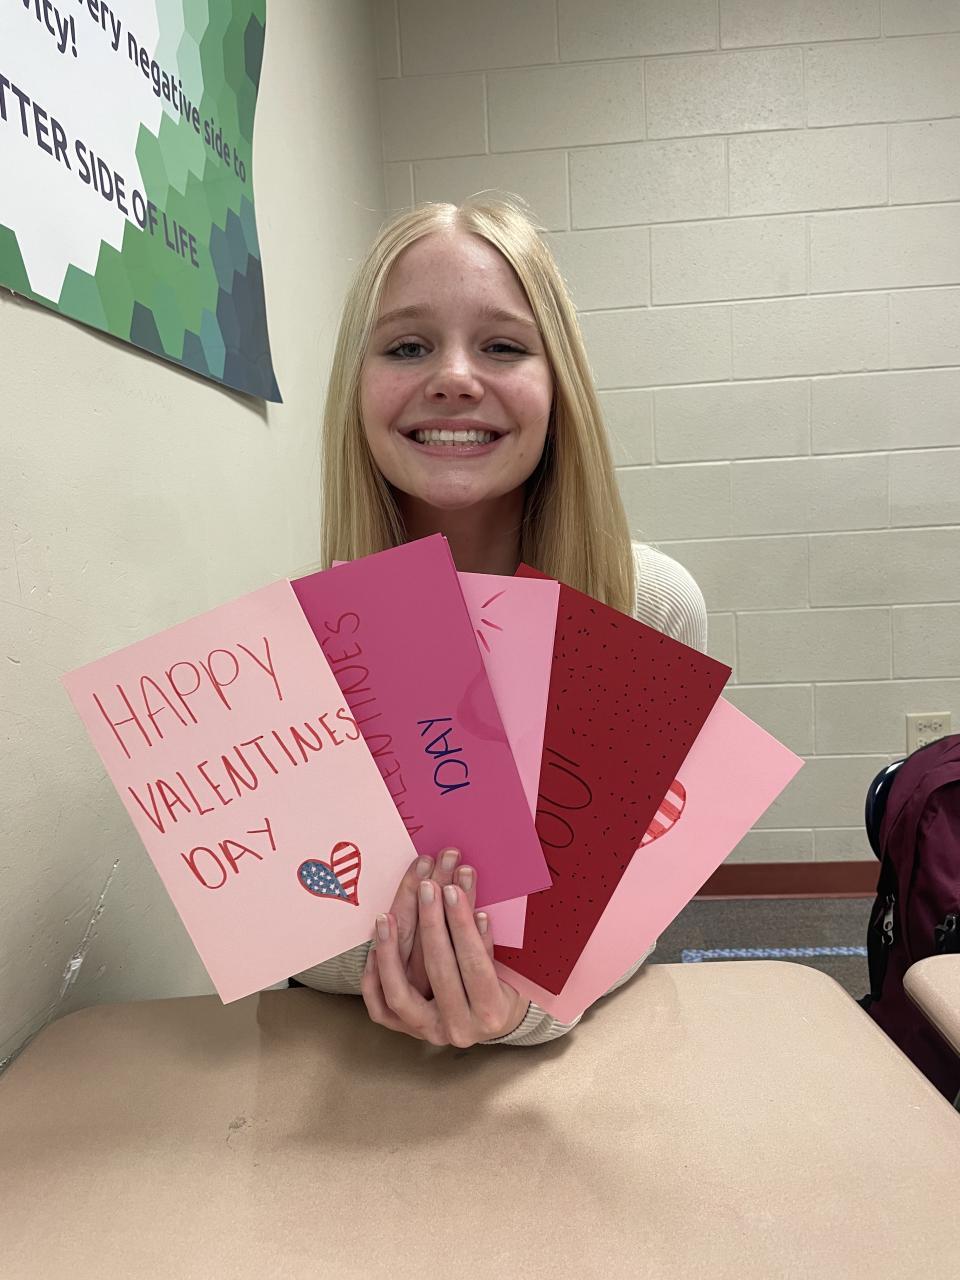 very negative side to
vity!
TTER SIDE OF LIFE
HAPPY
VALENTINES
DAY
DAY
YOU!